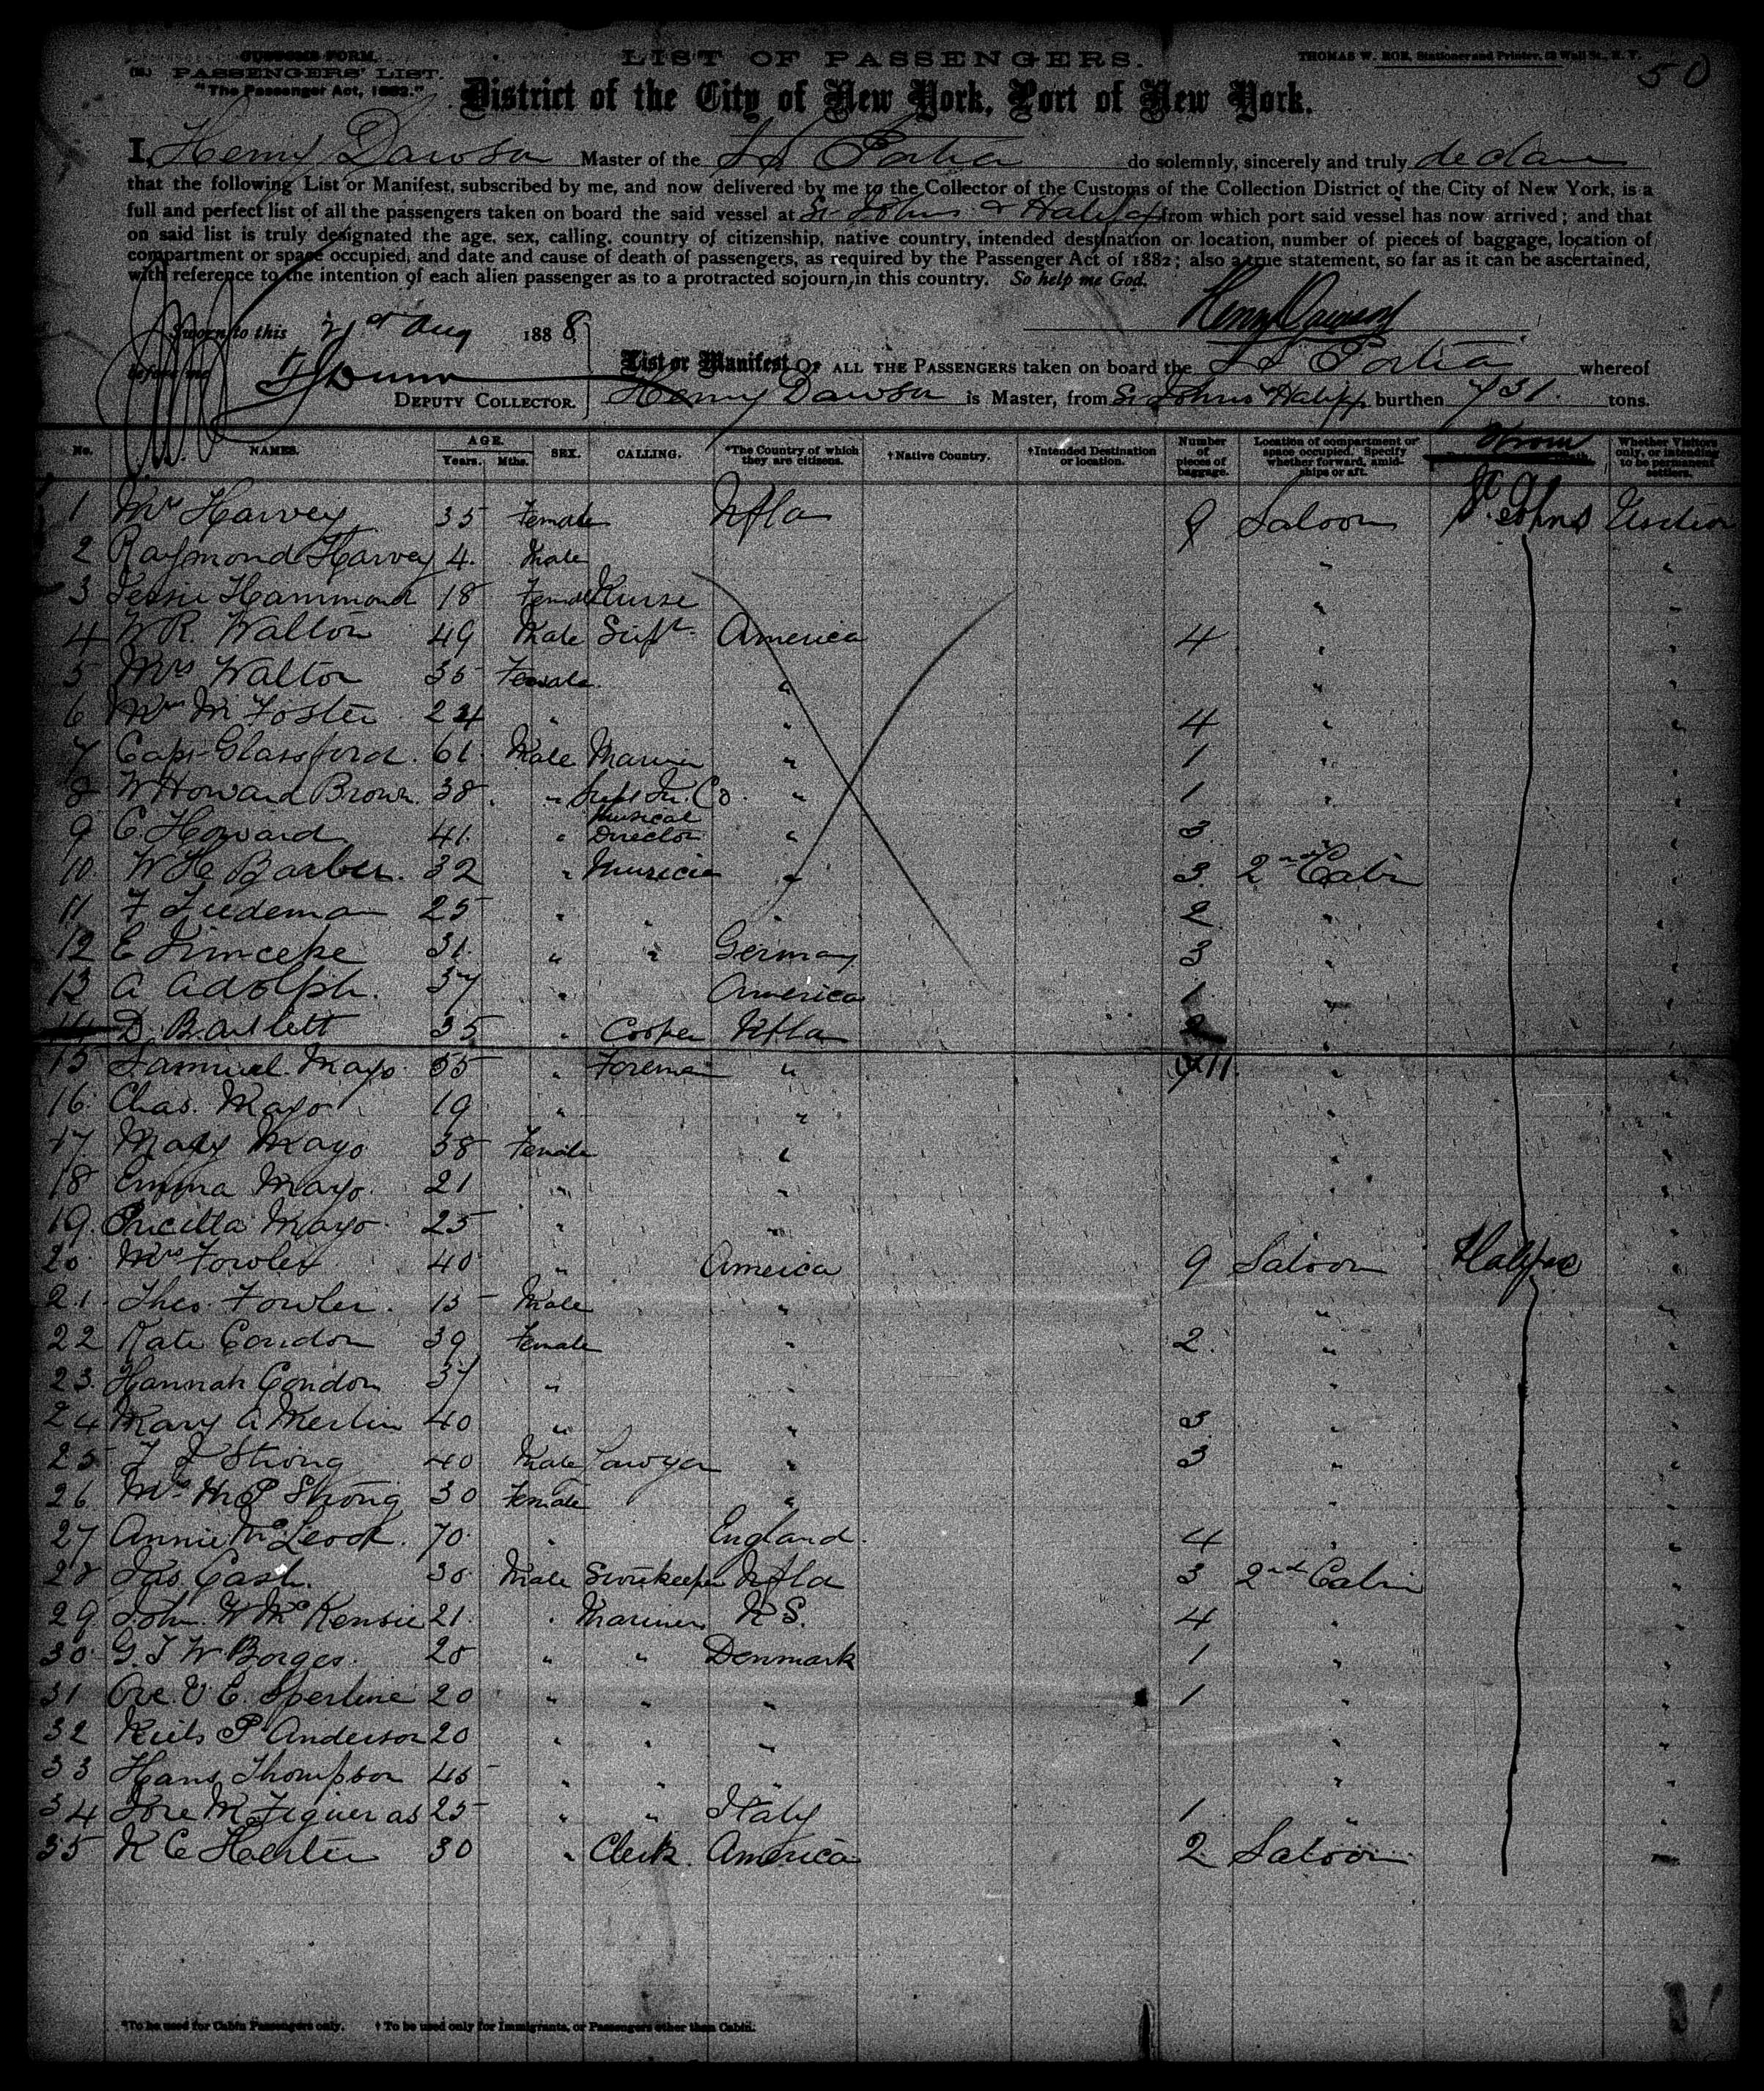 CUSTOMS FORM.
PASSENGERS' LIST.
"The Passenger Act, 1882."
LIST OF PASSENGERS.
THOMAS W. ROE, Stationer and Printer, 62 Wall St., N. Y.
50
District of the City of New York, Port of New York.
I, Henry Dawson Master of the SS Portia do solemnly, sincerely and truly declare
that the following List or Manifest, subscribed by me, and now delivered by me to the Collector of the Customs of the Collection District of the City of New York, is a
full and perfect list of all the passengers taken on board the said vessel at St Johns & Halifax from which port said vessel has now arrived; and that
on said list is truly designated the age, sex, calling, country of citizenship, native country, intended destination or location, number of pieces of baggage, location of
compartment or space occupied, and date and cause of death of passengers, as required by the Passenger Act of 1882; also a true statement, so far as it can be ascertained,
with reference to the intention of each alien passenger as to a protracted sojourn in this country. So help me God.
Henry Dawson
Sworn to this 21st Aug 1888
before me
DEPUTY COLLECTOR.
List or Manifest OF ALL THE PASSENGERS taken on board the SS Portia whereof
Henry Dawson is Master, from St Johns & Halifax burthen 731 tons.
No. NAMES. AGE. Years. Mths. SEX. CALLING. *The Country of which they are citizens. †Native Country. †Intended Destination or location. Number of pieces of baggage. Location of compartment or space occupied. Specify whether forward, amidships or aft. From Whether Visitors only, or intending to be permanent settlers.
1 Mrs Harvey 35 Female Nfla 8 Saloon St. Johns
2 Raymond Harvey 4. Male "
3 Jessie Hammond 18 Female Nurse "
4 W R. Walton 49 Male Supt. America 4 "
5 Mrs Walton 35 Female " "
6 Mrs M Foster 24 " " 4 "
7 Capt Glassford. 61 Male Mariner " 1 "
8 W Howard Brown. 38 " " 1 "
9 C. Howard 41. " Musical Director " 3 "
10. W H Barber. 32 " Musician " 3. 2nd Cabin
11 F Tiedeman 25 " " 2 "
12 E 31. " " Germany 3 "
13 A Adolph. 37 " America 1 "
14 D. Bartlett 35 " Cooper Nfla "
15 Samuel Mayo 55 " Foreman " 11. "
16. Chas. Mayo 19 " " "
17 Mary Mayo 38 Female " "
18 Emma Mayo. 21 " " "
19. Pricilla Mayo 25 " " "
20. Mrs Fowler 40 " America 9 Saloon Halifax
21. Theo. Fowler. 15 Male " "
22 Kate Condon 39 Female " 2. "
23. Hannah Condon 37 " " "
24 Mary A Merlin 40 " " 3 "
25 T J Strong 40 Male Lawyer " 3 "
26 Mrs M P Strong 30 Female " "
27 Annie McLeod. 70 " England. 4 "
28 Jas. Cash. 30 Male Storekeeper Nfla 3 2nd Cabin
29. John W McKensie 21. " Mariner N S. 4 "
30. G. J W Borges. 20 " " Denmark 1 "
31 Ove. V E. Sperline 20 " " " 1 "
32 Niels P Anderson 20 " " " "
33 Hans Thompson 45 " " " "
34 Jose M Figueras 25 " " Italy 1. "
35 30 " Clerk. America 2 Saloon
*To be used for Cabin Passengers only. † To be used only for Immigrants, or Passengers other than Cabin.